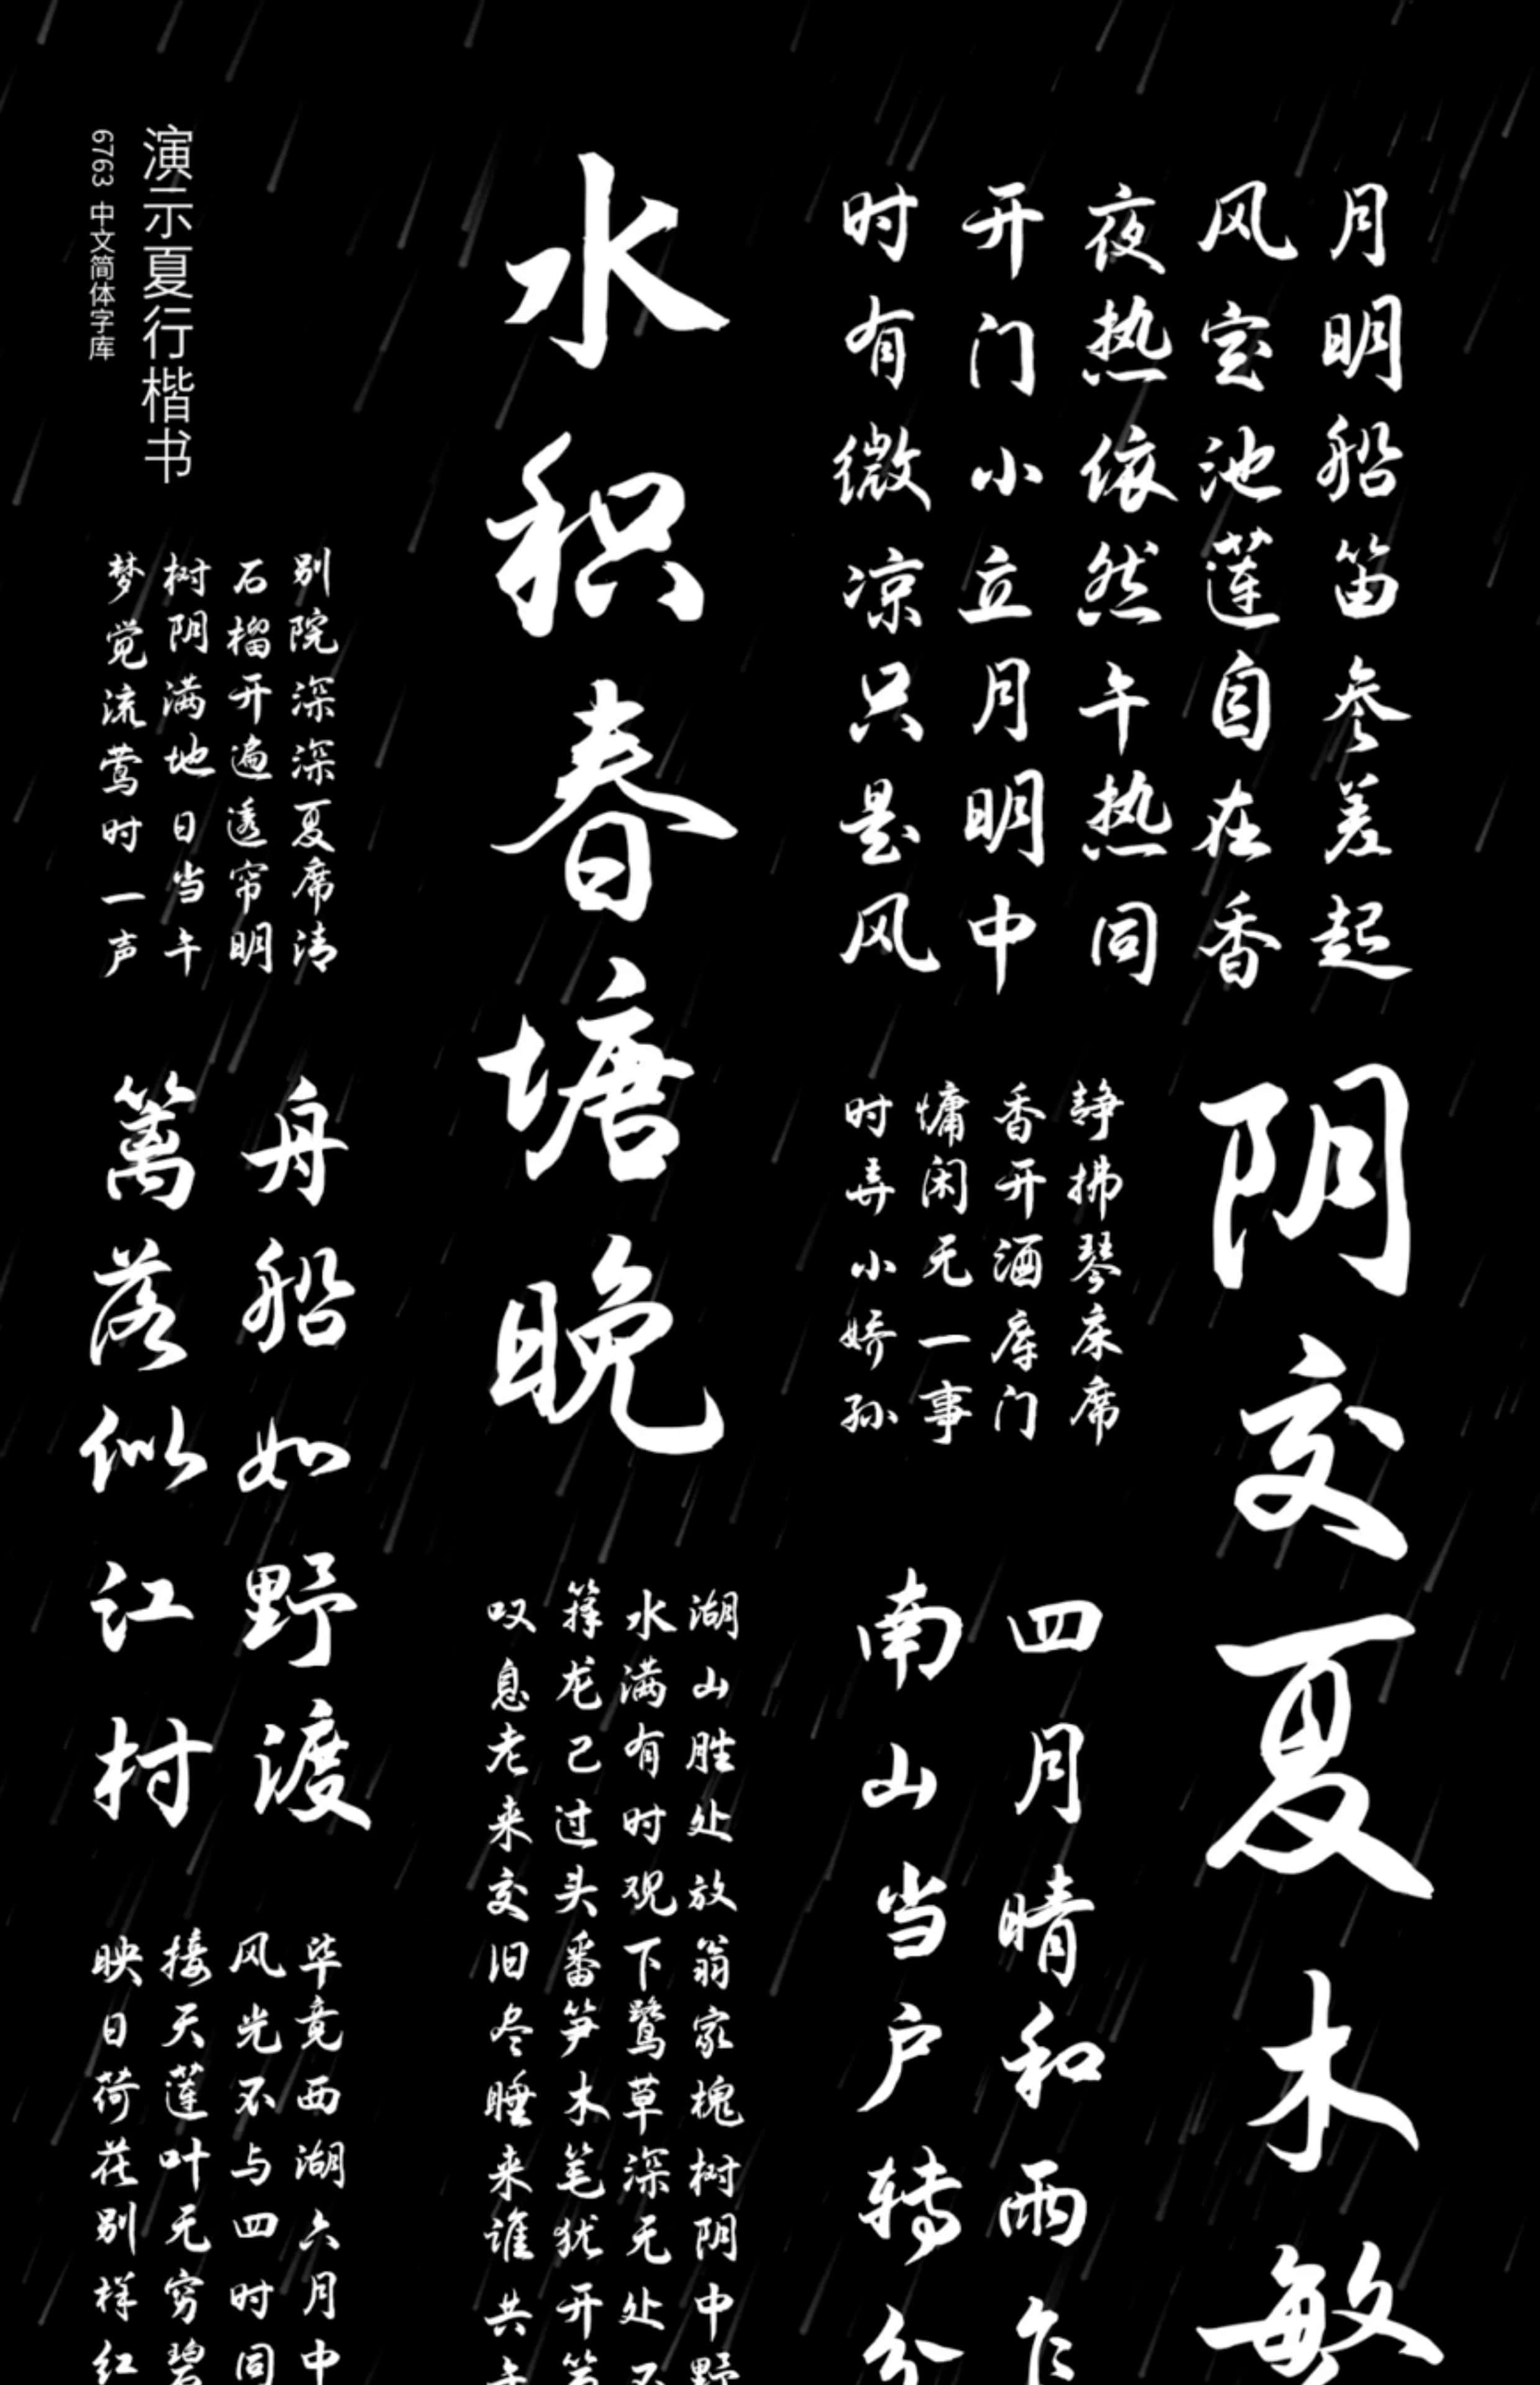 月明船笛参差起
风定池莲自在香
夜热依然午热同
开门小立月明中
时有微凉只是风
阴交夏木繁
静拂琴床席
香开酒库门
慵闲无一事
时弄小娇孙
四月晴和雨乍
南山当户转分
水积春塘晚
湖山胜处放翁家槐树阴中野
水满有时观下鹭草深无处不
箨龙已过头番笋木笔犹开第
叹息老来交旧尽睡来谁共午
别院深深夏席清
石榴开遍透帘明
树阴满地日当午
梦觉流莺时一声
舟船如野渡
篱落似江村
毕竟西湖六月中
风光不与四时同
接天莲叶无穷碧
映日荷花别样红
演示夏行楷书
6763 中文简体字库